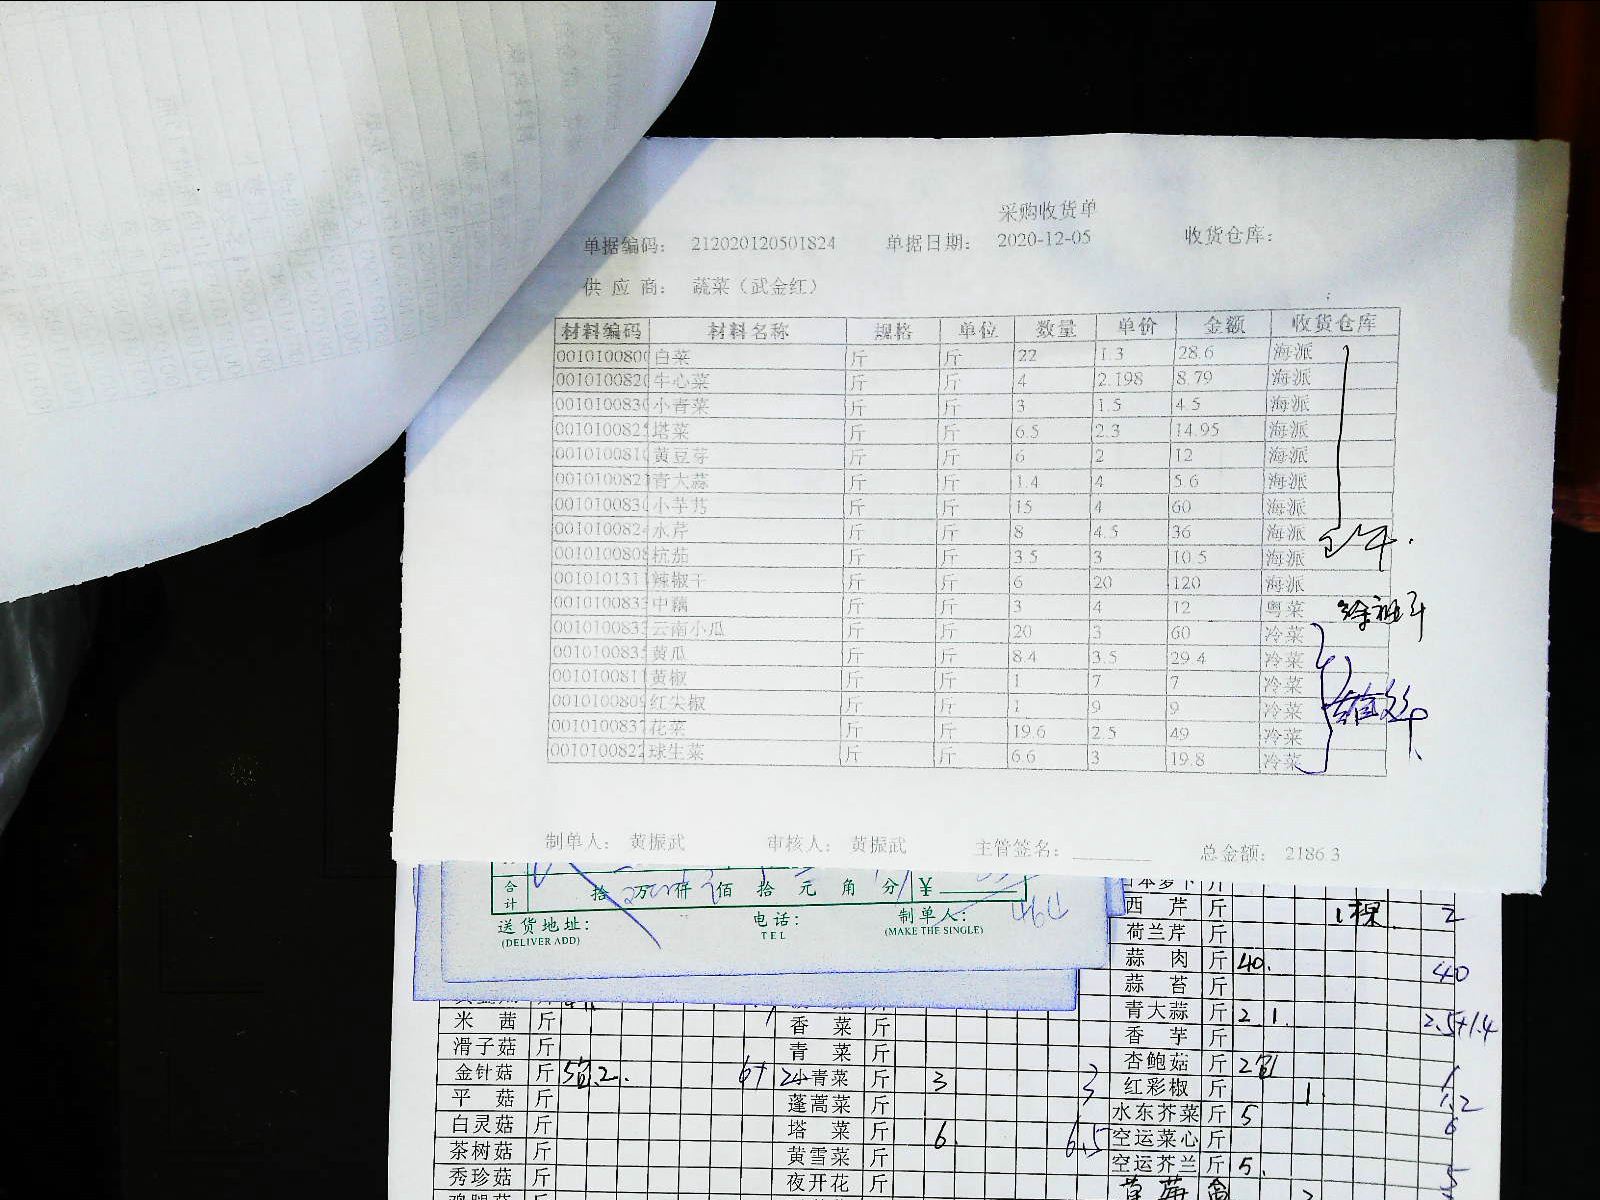 采购收货单
单据编码： 212020120501824 单据日期： 2020-12-05 收货仓库：
供 应 商： 蔬菜（武金红）
材料编码 材料名称 规格 单位 数量 单价 金额 收货仓库
0010100800 白菜 斤 斤 22 1.3 28.6 海派
0010100820 牛心菜 斤 斤 4 2.198 8.79 海派
0010100830 小青菜 斤 斤 3 1.5 4.5 海派
001010082 塔菜 斤 斤 6.5 2.3 14.95 海派
0010100810 黄豆芽 斤 斤 6 2 12 海派
001010082 青大蒜 斤 斤 1.4 4 5.6 海派
001010083 小芋艿 斤 斤 15 4 60 海派
001010082 水芹 斤 斤 8 4.5 36 海派
001010080 杭茄 斤 斤 3.5 3 10.5 海派
001010131 辣椒干 斤 斤 6 20 120 海派
001010083 中藕 斤 斤 3 4 12 粤菜
001010083 云南小瓜 斤 斤 20 3 60 冷菜
001010083 黄瓜 斤 斤 8.4 3.5 29.4 冷菜
001010081 黄椒 斤 斤 1 7 7 冷菜
001010080 红尖椒 斤 斤 1 9 9 冷菜
001010083 花菜 斤 斤 19.6 2.5 49 冷菜
001010082 球生菜 斤 斤 6.6 3 19.8 冷菜
制单人： 黄振武 审核人： 黄振武 主管签名： 总金额： 2186.3
合计 拾 万 仟 佰 拾 元 角 分 ¥
送货地址： 电话： 制单人：
(DELIVER ADD) TEL (MAKE THE SINGLE)
西 芹 斤 1棵 2
荷兰芹 斤
蒜 肉 斤 40. 40
蒜 苔 斤
青大蒜 斤 2 1. 2.5+1.4
香 芋 斤
杏鲍菇 斤 2包 1
红彩椒 斤 1. 1.2
水东芥菜 斤 5 6
空运菜心 斤
空运芥兰 斤 5. 5
米 茜 斤 香 菜 斤
滑子菇 斤 青 菜 斤
金针菇 斤 小青菜 斤 3 3
平 菇 斤 蓬蒿菜 斤
白灵菇 斤 塔 菜 斤 6. 6.5
茶树菇 斤 黄雪菜 斤
秀珍菇 斤 夜开花 斤